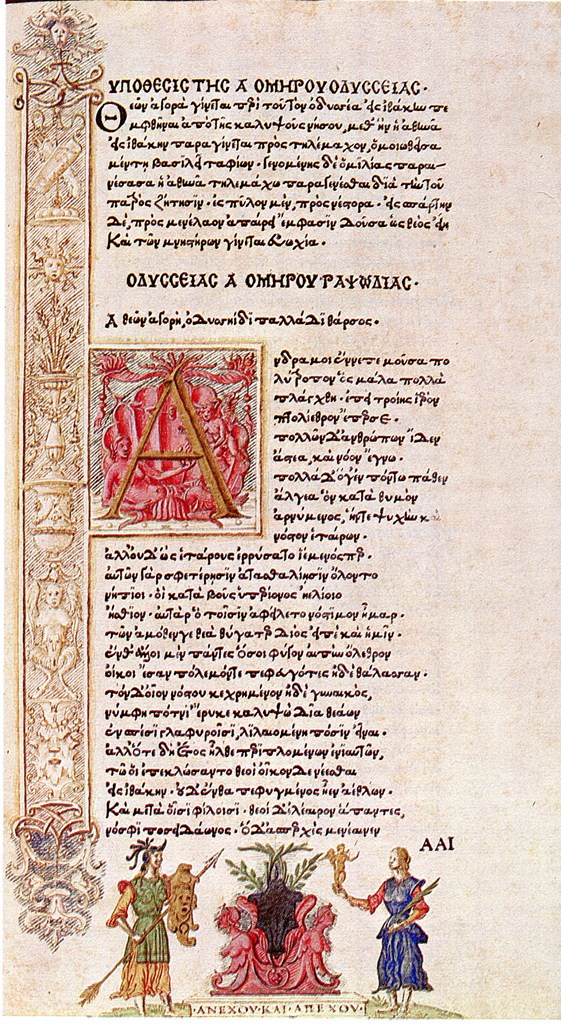 ΥΠΟΘΕСΙС ΤΗС Α ΟΜΗΡΟΥ ΟΔΥССΕΙΑС·
Θεῶν ἀγορὰ γίνεται περὶ τοῦ τὸν ὀδυσσέα εἰς ἰθάκην πε
μφθῆναι ἀπὸ τῆς καλυψοῦς νήσου, μεθ' ἣν ἡ ἀθηνᾶ
εἰς ἰθάκην παραγίνεται πρὸς τηλέμαχον, ὁμοιωθεῖσα
μέντῃ βασιλεῖ ταφίων· γενομένης δὲ ὁμιλίας παραι
νέσασα ἡ ἀθηνᾶ τηλεμάχω παραγενέσθαι διὰ τὴν τοῦ
πατρὸς ζήτησιν· ἐς πύλον μὲν, πρὸς νέστορα· εἰς σπάρτην
δὲ, πρὸς μενέλαον ἀπαίρει ἔμφασιν δοῦσα ὡς θεὸς εἴη
Καὶ τῶν μνηστήρων γίνεται εὐωχία·
ΟΔΥССΕΙΑС Α ΟΜΗΡΟΥ ΡΑΨΩΔΙΑС·
Α θεῶν ἀγορὴ, ὀδυσηΐδι παλλάδι θάρσος·
Α
νδρα μοι ἔννεπε μοῦσα πο
λύτροπον ὃς μάλα πολλὰ
πλάγχθη· ἐπεὶ τροίης ἱερὸν
πτολίεθρον ἔπερσε·
πολλῶν δ' ἀνθρώπων ἴδεν
ἄστεα, καὶ νόον ἔγνω·
πολλὰ δ' ὅγ' ἐν πόντω πάθεν
ἄλγεα ὃν κατὰ θυμὸν
ἀρνύμενος, ἥντε ψυχὴν κα
νόστον ἑταίρων·
ἀλλ' οὐδ' ὣς ἑτάρους ἐρρύσατο ἱέμενός περ·
αὐτῶν γὰρ σφετέρησιν ἀτασθαλίησιν ὄλοντο
νήπιοι· οἳ κατὰ βοῦς ὑπερίονος ἠελίοιο
ἤσθιον· αὐτὰρ ὁ τοῖσιν ἀφείλετο νόστιμον ἦμαρ·
τῶν ἀμόθεν γε θεὰ θύγατερ διὸς εἰπὲ καὶ ἡμῖν·
ἔνθ' ἄλλοι μὲν πάντες ὅσοι φύγον αἰπὺν ὄλεθρον
οἴκοι ἔσαν πόλεμόν τε πεφευγότες ἠδὲ θάλασσαν·
τὸν δ' οἶον νόστου κεχρημένον ἠδὲ γυναικὸς,
νύμφη πότνι' ἔρυκε καλυψὼ δῖα θεάων
ἐν σπέσι γλαφυροῖσι, λιλαιομένη πόσιν εἶναι·
ἀλλ' ὅτε δὴ ἔτος ἦλθε περιπλομένων ἐνιαυτῶν,
τῶ οἱ ἐπεκλώσαντο θεοὶ οἶκον δὲ νέεσθαι
εἰς ἰθάκην· οὐδ' ἔνθα πεφυγμένος ἦεν ἀέθλων·
Καὶ μετὰ οἷσι φίλοισι· θεοὶ δ' ἐλέαιρον ἅπαντες,
νόσφι ποσειδάωνος· ὁ δ' ἀσπερχὲς μενέαινεν
ΑΛΙ
·ΑΝΕΧΟΥ·ΚΑΙ·ΑΠΕΧΟΥ·